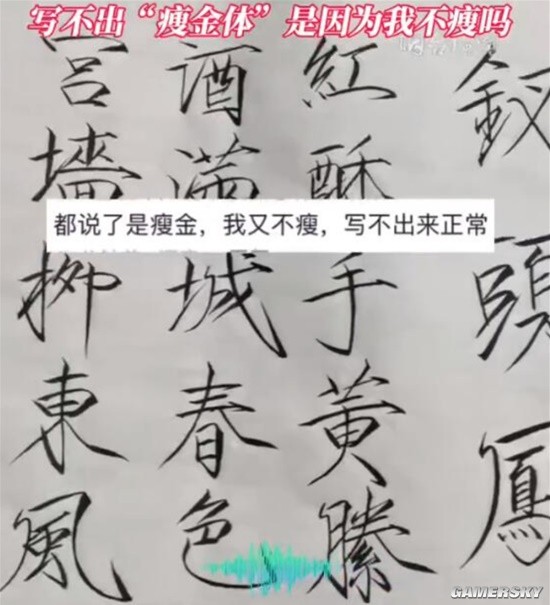 写不出“瘦金体”是因为我不瘦吗
都说了是瘦金，我又不瘦，写不出来正常
釵頭鳳
紅酥手黃縢
酒滿城春色
宮墻柳東風
GAMERSKY